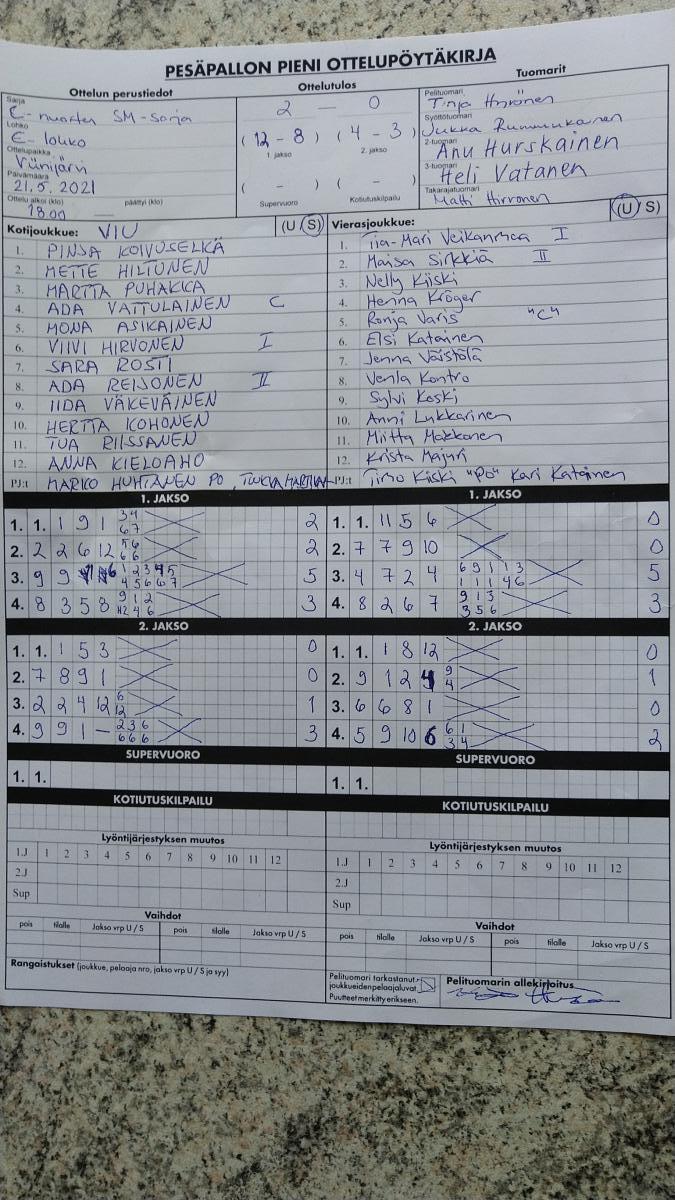 PESÄPALLON PIENI OTTELUPÖYTÄKIRJA
Ottelun perustiedot
Sarja
E-nuorten SM-sarja
Lohko
E-lohko
Ottelupaikka
Viinijärvi
Päivämäärä
21.5.2021
Ottelu alkoi (klo) päättyi (klo)
18.00 —
Ottelutulos
2 — 0
( 12 - 8 ) ( 4 - 3 )
1. jakso 2. jakso
( - ) ( - )
Supervuoro Kotiutuskilpailu
Tuomarit
Pelituomari
Tinja Hirvonen
Syöttötuomari
Jukka Rummukainen
2-tuomari
Anu Hurskainen
3-tuomari
Heli Vatanen
Takarajatuomari
Matti Hirvonen
Kotijoukkue: VIU (U/S)
1. PINJA KOIVUSELKÄ
2. METTE HILTUNEN
3. MARTTA PUHAKKA
4. ADA VATTULAINEN C
5. MONA ASIKAINEN
6. VIIVI HIRVONEN I
7. SARA ROSTI
8. ADA REIJONEN II
9. IIDA VÄKEVÄINEN
10. HERTTA KOHONEN
11. TUA RIISSANEN
12. ANNA KIELOAHO
PJ:t MARKO HUHTANEN PO,
Vierasjoukkue: (U/S)
1. Tiia-Mari I
2. Maisa Sirkkiä II
3. Nelly Kiiski
4. Henna Kröger
5. Ronja Varis "C"
6. Elsi Katainen
7. Jenna Väistölä
8. Venla Kontro
9. Sylvi Koski
10. Anni Lukkarinen
11. Miitta Makkonen
12. Krista Majuri
PJ:t Timo Kiiski "PO" Kari Katainen
1. JAKSO
1. 1. 1 9 1 34 67 2
2. 2 2 6 12 56 66 2
3. 9 9 6 12345 45667 5
4. 8 3 5 8 912 1246 3
1. JAKSO
1. 1. 11 5 6 0
2. 7 7 9 10 0
3. 4 7 2 4 69113 11146 5
4. 8 2 6 7 913 356 3
2. JAKSO
1. 1. 1 5 3 0
2. 7 8 9 1 0
3. 2 2 4 12 6 12 1
4. 9 9 1 – 236 666 3
2. JAKSO
1. 1. 1 8 12 0
2. 9 1 2 4 9 4 1
3. 6 6 8 1 0
4. 5 9 10 6 61 34 2
SUPERVUORO
1. 1.
SUPERVUORO
1. 1.
KOTIUTUSKILPAILU
KOTIUTUSKILPAILU
Lyöntijärjestyksen muutos
1.J 1 2 3 4 5 6 7 8 9 10 11 12
2.J
Sup
Lyöntijärjestyksen muutos
1.J 1 2 3 4 5 6 7 8 9 10 11 12
2.J
Sup
Vaihdot
pois tilalle Jakso vrp U / S pois tilalle Jakso vrp U / S
Vaihdot
pois tilalle Jakso vrp U / S pois tilalle Jakso vrp U / S
Rangaistukset (joukkue, pelaaja nro, jakso vrp U / S ja syy)
Pelituomari tarkastanut
joukkueiden pelaajaluvat.
Puutteet merkitty erikseen.
Pelituomarin allekirjoitus